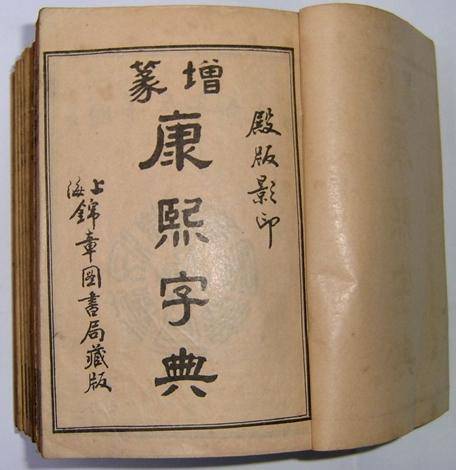 殿版影印
增篆
康熙字典
上海
錦章圖書局藏版